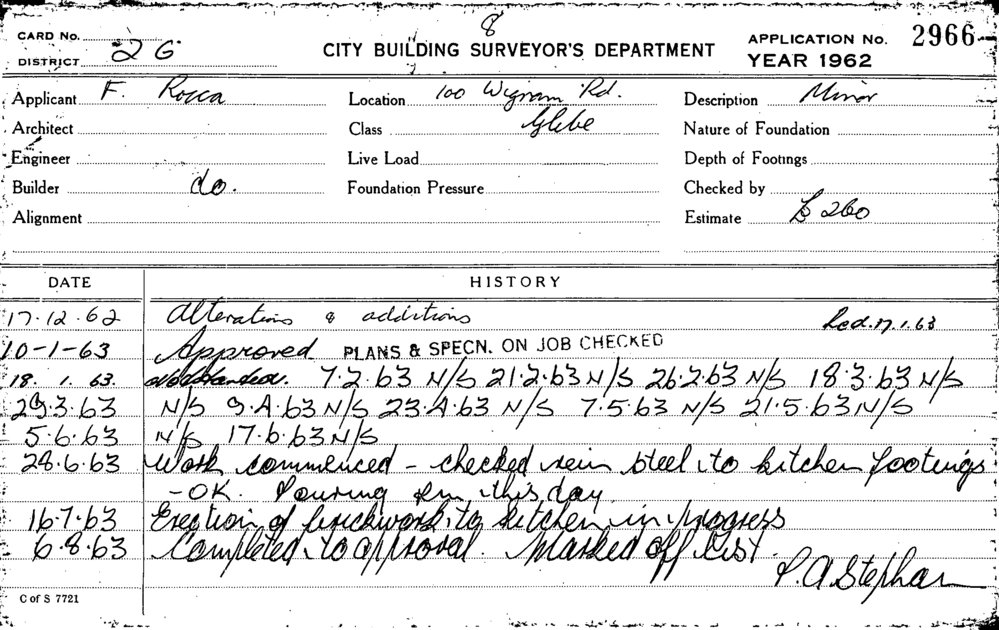 8
CARD No.
DISTRICT 26
CITY BUILDING SURVEYOR'S DEPARTMENT
APPLICATION No. 2966
YEAR 1962
Applicant F. Rocca Location 100 Wigram Rd. Description Minor
Architect Class Glebe Nature of Foundation
Engineer Live Load Depth of Footings
Builder do. Foundation Pressure Checked by
Alignment Estimate £ 260
DATE HISTORY
17.12.62 Alterations & additions Red. 17.1.63
10-1-63 Approved PLANS & SPECN. ON JOB CHECKED
18.1.63. Not started. 7.2.63 N/S 21.2.63 N/S 26.2.63 N/S 18.3.63 N/S
.3.63 N/S 9.4.63 N/S 23.4.63 N/S 7.5.63 N/S 21.5.63 N/S
5.6.63 N/S 17.6.63 N/S
28.6.63 Work commenced - checked rein steel to kitchen footings
- OK. Pouring this day
16.7.63 Erection of brickwork to kitchen in progress
6.8.63 Completed to approval. Marked off list.
P.A Stephan
C of S 7721